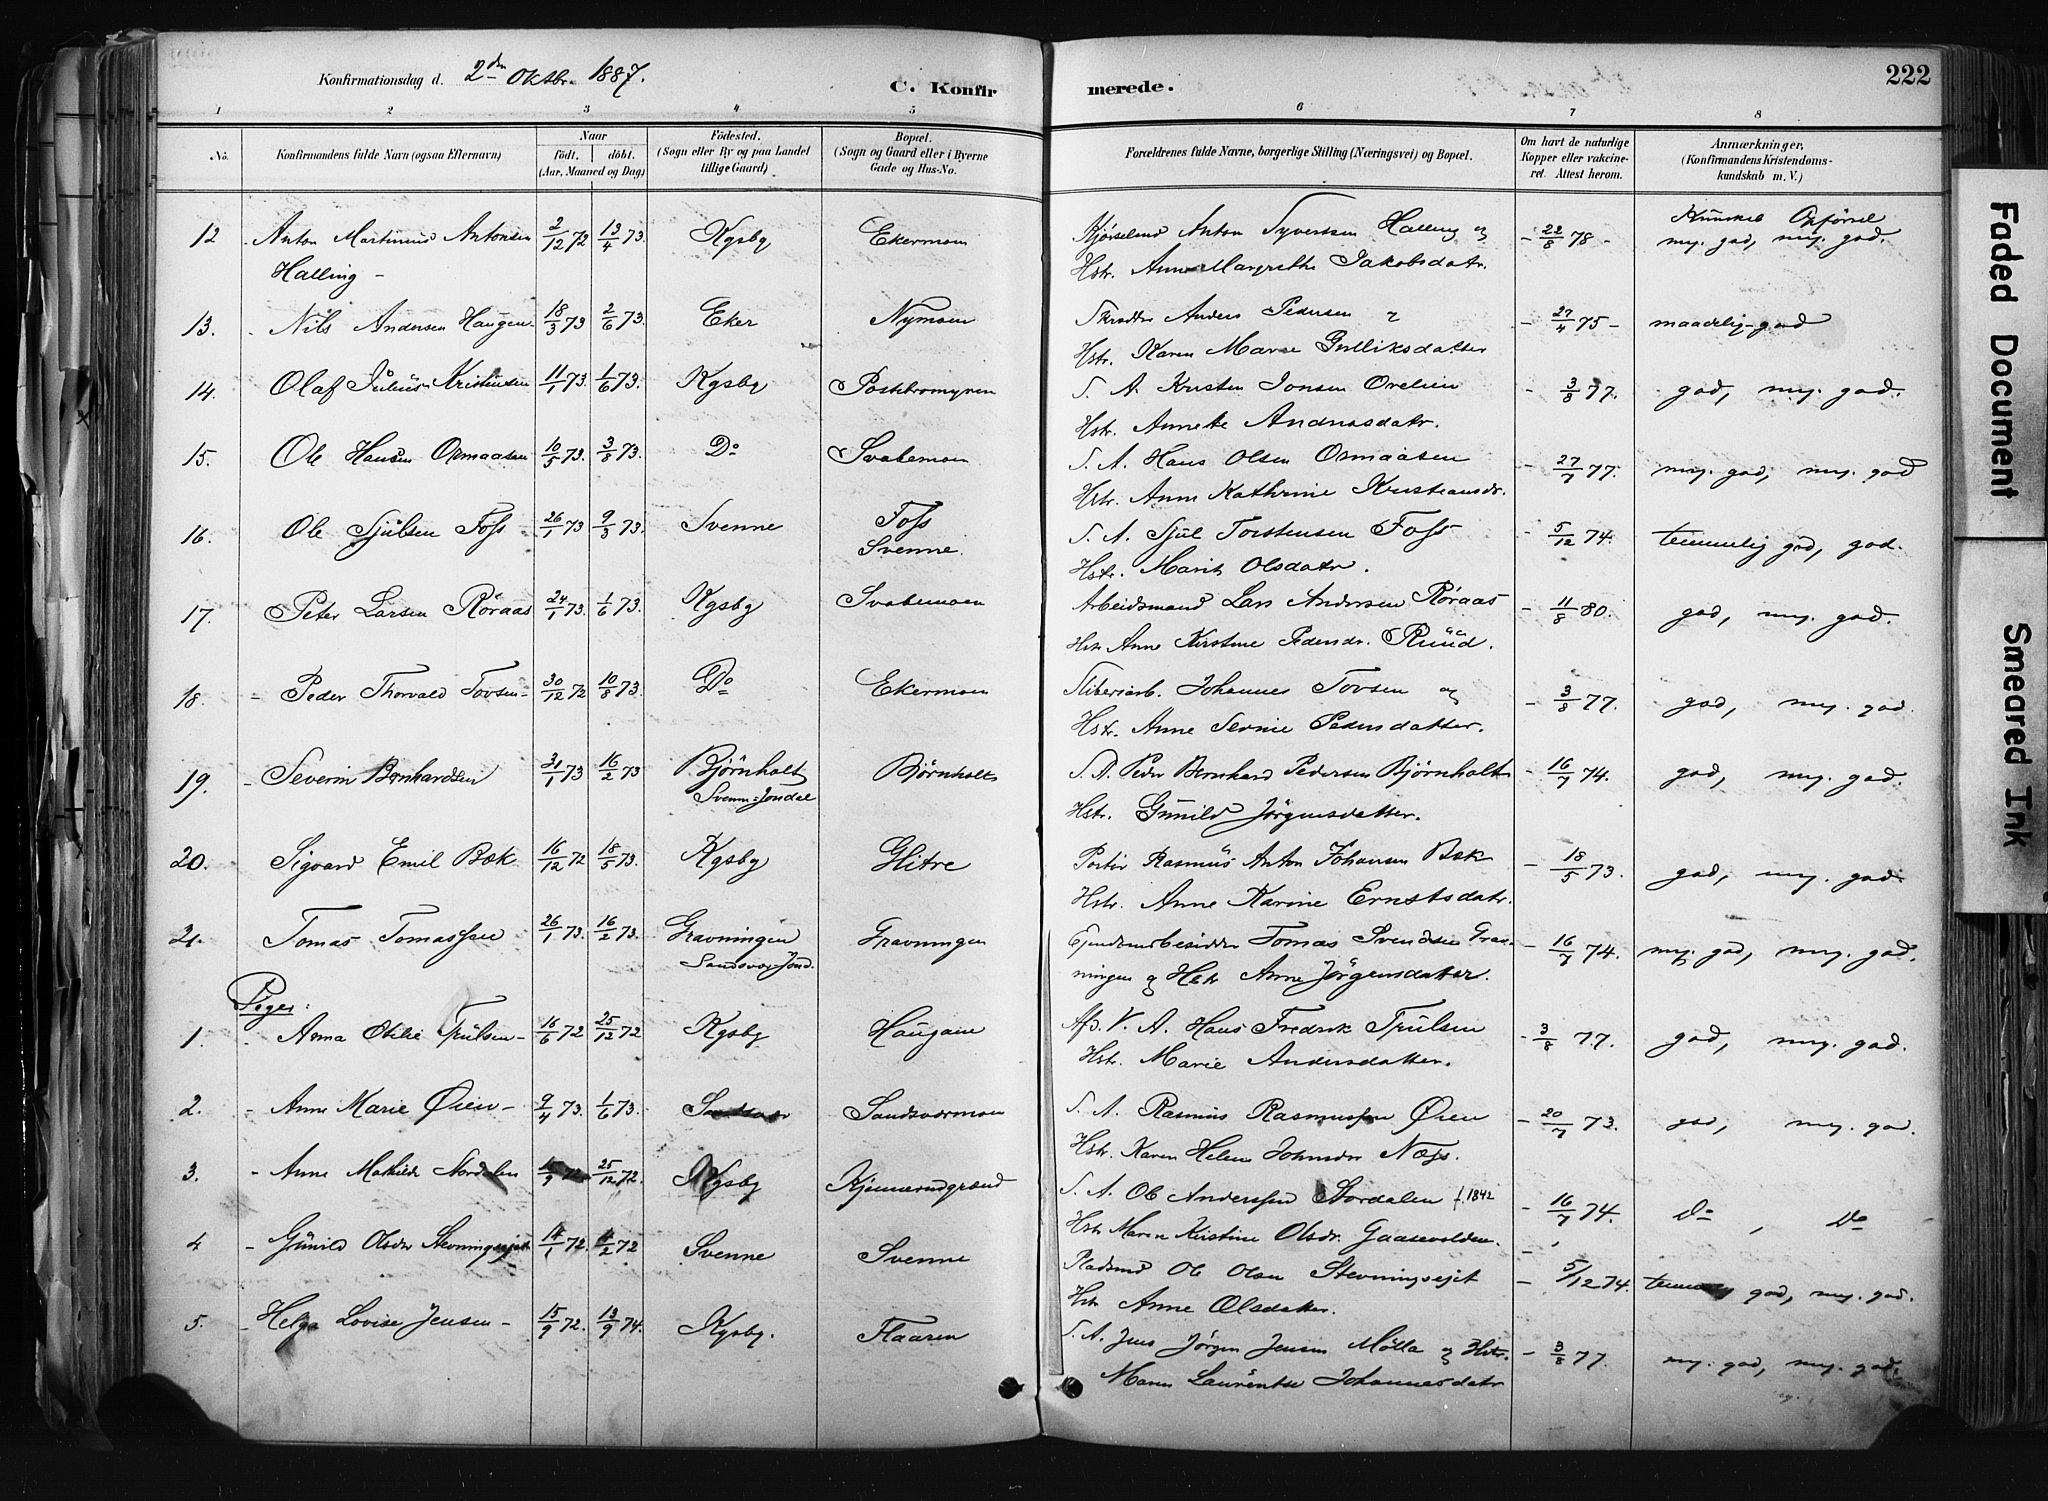 Konfirmationsdag d. 2den Oktbr. 1887.
C. Konfirmerede.
222
1 2 3 4 5 6 7 8
No.
Konfirmandens fulde Navn (ogsaa Efternavn)
Naar
født. døbt.
(Aar, Maaned og Dag)
Fødested.
(Sogn eller By og paa Landet
tillige Gaard)
Bopæl.
(Sogn og Gaard eller i Byerne
Gade og Hus-No.
Forældrenes fulde Navne, borgerlige Stilling (Næringsvei) og Bopæl.
Om havt de naturlige
Kopper eller vakcineret. Attest herom.
Anmærkninger.
(Konfirmandens Kristendomskundskab m. V.)
Kundskab Opførsel
12 Anton Martinius Antonsen 2/12 72 13/4 73. Kgsby Ekermoen Kjørselmd Anton Syvertsen Halling og - 22/8 78 - meg. god, meg. god.
Halling - Hstr. Anne Margrethe Jakobsdatr.
13. - Nils Andersen Haugen - 18/3 73 2/6 73. Eker Nymoen Skrædder Anders Pedersen - 27/4 75 - maadelig - god
Hstr. Karen Marie Gulliksdatter
14. Olaf Julius Kristensen 11/1 73. 1/6 73. Kgsby Postbromyren S. A. Kristen Jonsen Orelien - 3/8 77. god, meg. god.
Hstr. Annete Andreasdatr.
15. Ole Hansen Ormaasen 10/5 73. 3/8 73. Do Svabemoen S. A. Hans Olsen Ormaasen - 27/7 77. meg. god, meg. god
Hstr. Anne Kathrine Kristiansdr.
16. Ole Sjulsen Foss 26/1 73 9/3 73. Svenne Foss S. A. Sjul Torstensen Foss - 5/12 74. temmelig god, god.
Svenne. Hstr. Marit Olsdatr.
17. Peter Larsen Røraas 24/1 73. 1/6 73. Kgsby Svabemoen Arbeidsmand Lars Andersen Røraas - 11/8 80. god, meg. god.
Hstr Anne Kirstine Pedersdr. Ruud.
18. - Peder Thorvald Tovsen - 30/12 72 10/8 73. Do Ekermoen Sliberiarb. Johannes Tovsen og - 3/8 77. god, meg. god.
Hstr. Anne Pedersdatter.
19. - Severin Bernhardsen 31/1 73 16/2 73 Bjørnholt Bjørnholt S. A. Peder Bernhard Pedersen Bjørnholt - 16/7 74. god, meg. god.
Svenne-Jondal Hstr. Gunild Jørgensdatter.
20. Sigvard Emil Bæk 16/12 72 18/5 73. Kgsby Glitre Portier Rasmus Anton Johansen Bæk - 18/5 73. god, meg. god.
Hstr. Anne Karine Ernstsdatr.
21. Tomas Tomassen 26/1 73. 16/2 73. Gravningen Gravningen Eiendomsbesidder Tomas Svendsen Grav- - 16/7 74. meg. god, meg. god.
Sandsvær-Jond. ningen og Hstr Anne Jørgensdatter.
Piger:
1. Anna Otilie Trulsen - 16/6 72 25/12 72 Kgsby Haugane Afd. V. A. Hans Fredrik Trulsen - 3/8 77. god, meg. god.
Hstr. Marie Andersdatter.
2. - Anne Marie Øien - 9/4 73. 1/6 73. Sandsvær Sandsværmoen S. A. Rasmus Rasmussen Øien - 20/7 73. god, meg. god.
Hstr. Karen Helene Johnsdr Næss.
3. - Anne Mathilde Stordalen 25/12 72. Kgsby Kjennerudgrænd S. A. Ole Anderssen Stordalen f. 1842 - 16/7 74. Do , Do
Hstr Maren Kirstine Olsdr. Gaasevolden.
4 - Gunild Olsdtr Stevningseiet 14/1 72. 4/2 72 Svenne Svenne Pladsmd Ole Olsen Stevningseiet - 5/12 74. temmelig god, meg. god.
Hstr Anne Olsdatter.
5. - Helga Lovise Jensen - 15/9 72. 13/9 74. Kgsby. Flaaren S. A. Jens Jørgen Jensen Mølla og Hstr. - 3/8 77. meg. god, meg. god.
Maren Laurentse Johannesdatr
Faded Document
Smeared Ink